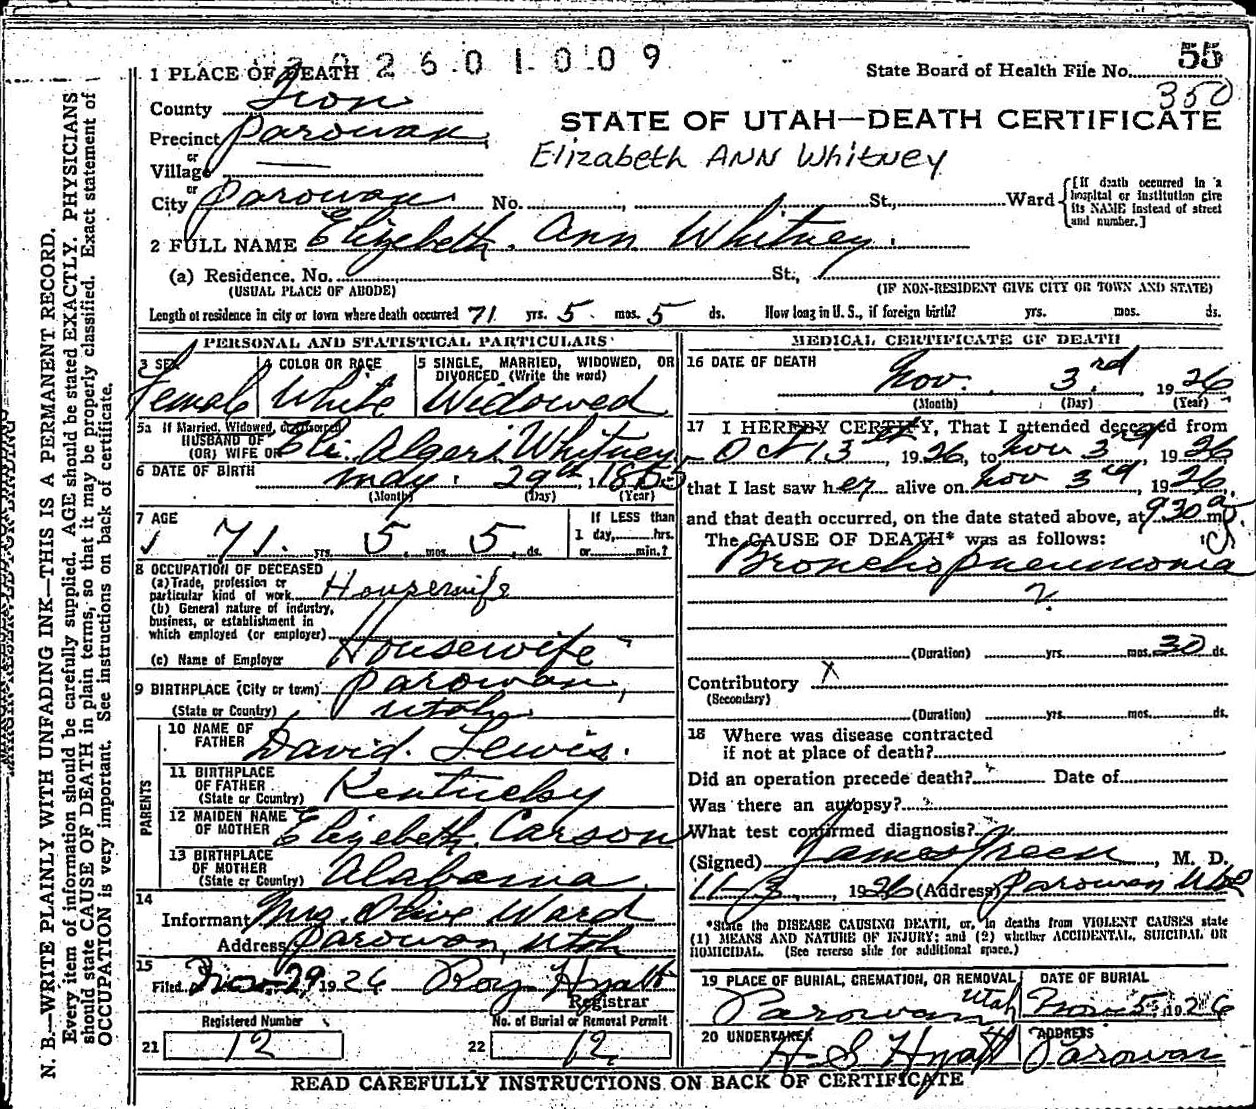 2 6 0 1 0 0 9
55
1 PLACE OF DEATH
State Board of Health File No. 350
County Iron
STATE OF UTAH—DEATH CERTIFICATE
Precinct Parowan
Elizabeth ANN Whitney
or
Village —
or
City Parowan No. , St., Ward [If death occurred in a hospital or institution give its NAME instead of street and number.]
2 FULL NAME Elizebeth. Ann Whitney.
(a) Residence, No. St.,
(USUAL PLACE OF ABODE) (IF NON-RESIDENT GIVE CITY OR TOWN AND STATE)
Length of residence in city or town where death occurred 71 yrs. 5 mos. 5 ds. How long in U. S., if foreign birth? yrs. mos. ds.
PERSONAL AND STATISTICAL PARTICULARS
3 SEX Female
4 COLOR OR RACE White
5 SINGLE, MARRIED, WIDOWED, OR DIVORCED (Write the word) Widowed
5a If Married, Widowed, or Divorced
HUSBAND OF
(OR) WIFE OF Eli. Alger Whitney
6 DATE OF BIRTH May. 29th, 1855
(Month) (Day) (Year)
7 AGE 71. yrs. 5. mos. 5. ds.
If LESS than
1 day, hrs.
or min.?
8 OCCUPATION OF DECEASED
(a) Trade, profession or
particular kind of work Housewife
(b) General nature of industry,
business, or establishment in
which employed (or employer)
Housewife
(c) Name of Employer
9 BIRTHPLACE (City or town) Parowan,
(State or Country) Utah
PARENTS
10 NAME OF FATHER David. Lewis.
11 BIRTHPLACE OF FATHER (State or Country) Kentucky
12 MAIDEN NAME OF MOTHER Elizebeth. Carson
13 BIRTHPLACE OF MOTHER (State or Country) Alabama
14 Informant Mrs. Olive Ward
Address Parowan, Utah
15 Filed Nov-29 1926 Roy Hyatt
Registrar
Registered Number
No. of Burial or Removal Permit
21 12
22 12
MEDICAL CERTIFICATE OF DEATH
16 DATE OF DEATH
Nov. 3rd 1926
(Month) (Day) (Year)
17 I HEREBY CERTIFY, That I attended deceased from
Oct 13th 1926, to Nov 3rd, 1926
that I last saw her alive on Nov 3rd, 1926,
and that death occurred, on the date stated above, at 930 a m.
The CAUSE OF DEATH* was as follows:
Broncho pneumonia
(Duration) yrs. mos. 30 ds.
Contributory X
(Secondary)
(Duration) yrs. mos. ds.
18 Where was disease contracted
if not at place of death?
Did an operation precede death? Date of
Was there an autopsy?
What test confirmed diagnosis?
(Signed) James Green, M. D.
11-3, 1926 (Address) Parowan
*State the DISEASE CAUSING DEATH, or, in deaths from VIOLENT CAUSES state
(1) MEANS AND NATURE OF INJURY; and (2) whether ACCIDENTAL, SUICIDAL OR
HOMICIDAL. (See reverse side for additional space.)
19 PLACE OF BURIAL, CREMATION, OR REMOVAL
Parowan Utah
DATE OF BURIAL
Nov 5, 1926
20 UNDERTAKER
H S Hyatt
ADDRESS
Parowan
READ CAREFULLY INSTRUCTIONS ON BACK OF CERTIFICATE
N. B.—WRITE PLAINLY WITH UNFADING INK—THIS IS A PERMANENT RECORD.
Every item of information should be carefully supplied. AGE should be stated EXACTLY. PHYSICIANS
should state CAUSE OF DEATH in plain terms, so that it may be properly classified. Exact statement of
OCCUPATION is very important. See instructions on back of certificate.